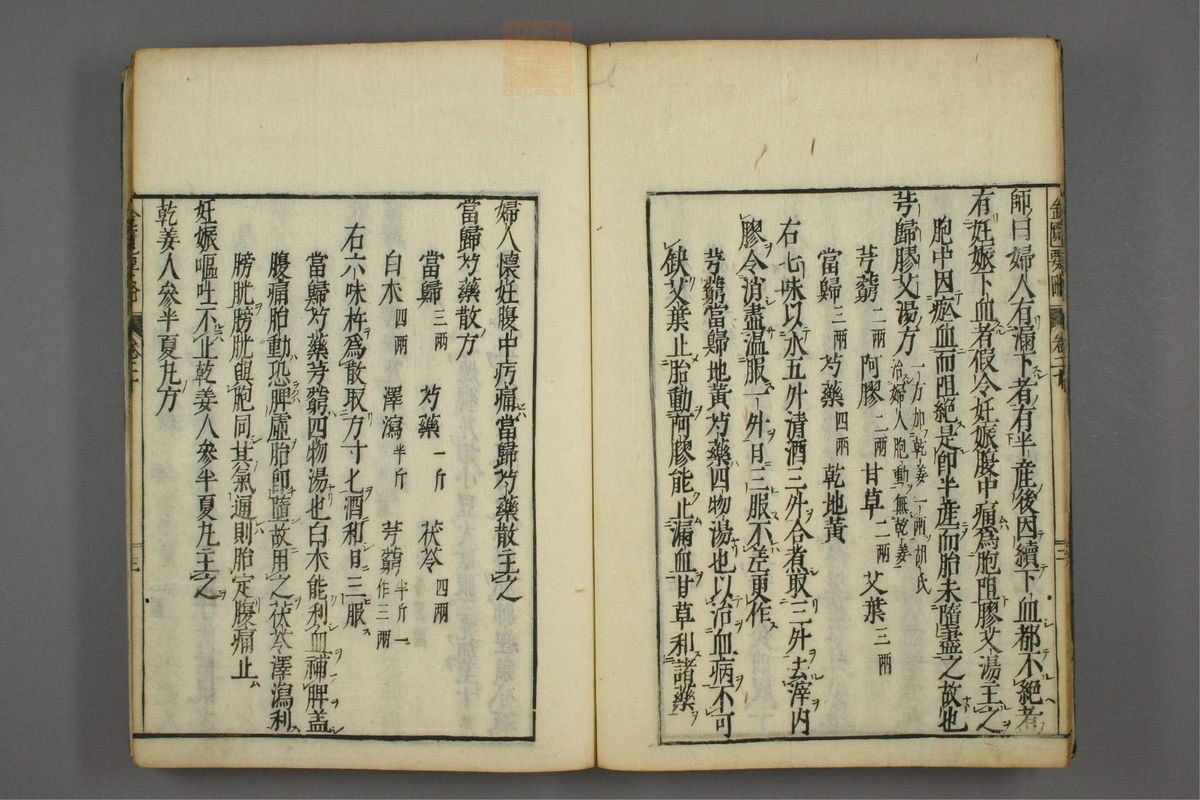 師曰婦人有漏下者有半產後因續下血都不絕者
有妊娠下血者假令妊娠腹中痛為胞阻膠艾湯主之
胞中因瘀血而阻絕是卽半產而胎未隨盡之故也
芎歸膠艾湯方 一方加乾姜一兩胡氏治婦人胞動無乾姜
芎藭二兩 阿膠二兩 甘草二兩 艾葉三兩
當歸三兩 芍藥四兩 乾地黃
右七味以水五升清酒三升合煮取三升去滓內
膠令消盡温服一升日三服不差更作
芎藭當歸地黃芍藥四物湯也以治血病不可
缺艾葉止胎動阿膠能止漏血甘草和諸藥
婦人懷妊腹中㽲痛當歸芍藥散主之
當歸芍藥散方
當歸三兩 芍藥一斤 茯苓四兩
白朮四兩 澤瀉半斤 芎藭半斤一作三兩
右六味杵為散取方寸匕酒和日三服
當歸芍藥芎藭四物湯也白朮能利血補脾盖
腹痛胎動恐脾虛胎卽隨故用之茯苓澤瀉利
膀胱膀胱與胞同其氣通則胎定腹痛止
妊娠嘔吐不止乾姜人參半夏丸主之
乾姜人參半夏丸方